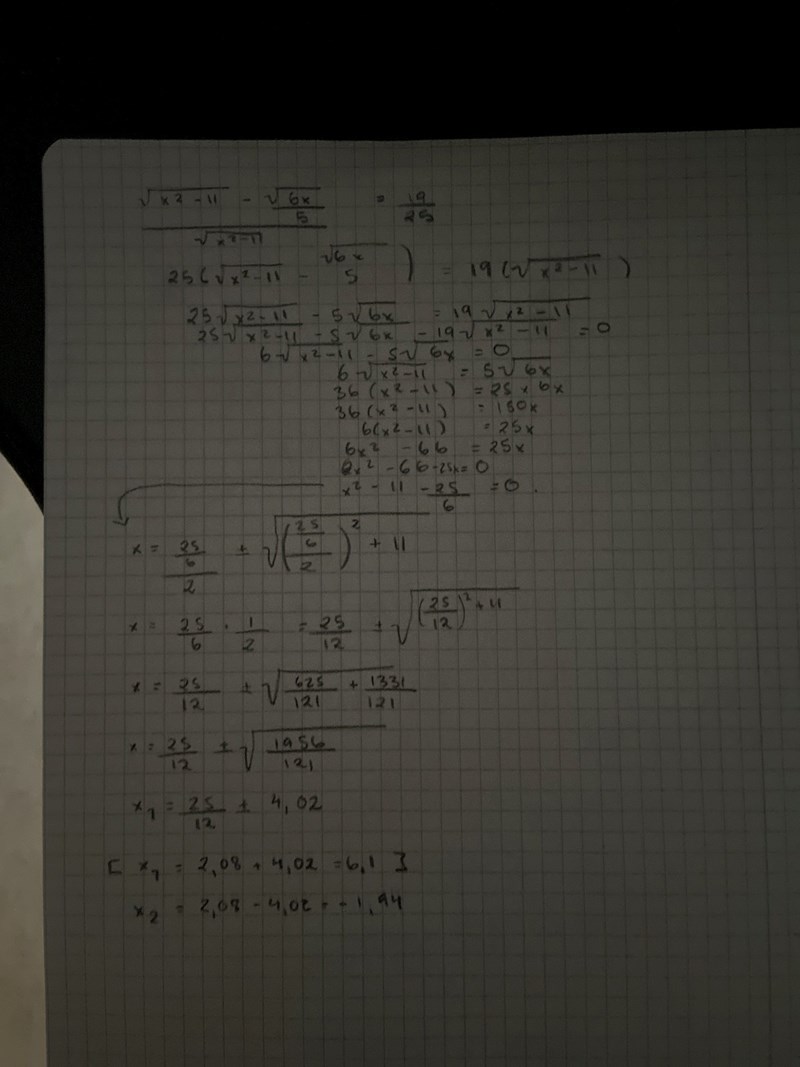 (√(x² - 11) - √(6x)/5) / √(x² - 11) = 19/25
25(√(x² - 11) - √(6x)/5) = 19(√(x² - 11))
25√(x² - 11) - 5√(6x) = 19√(x² - 11)
25√(x² - 11) - 5√(6x) - 19√(x² - 11) = 0
6√(x² - 11) - 5√(6x) = 0
6√(x² - 11) = 5√(6x)
36(x² - 11) = 25 × 6x
36(x² - 11) = 150x
6(x² - 11) = 25x
6x² - 66 = 25x
6x² - 66 - 25x = 0
x² - 11 - 25/6 = 0.
x = (25/6)/2 ± √(((25/6)/2)² + 11)
x = 25/6 · 1/2 = 25/12 ± √((25/12)² + 11)
x = 25/12 ± √(625/121 + 1331/121)
x = 25/12 ± √(1956/121)
x₁ = 25/12 ± 4,02
[ x₁ = 2,08 + 4,02 = 6,1 ]
x₂ = 2,08 - 4,02 = -1,94